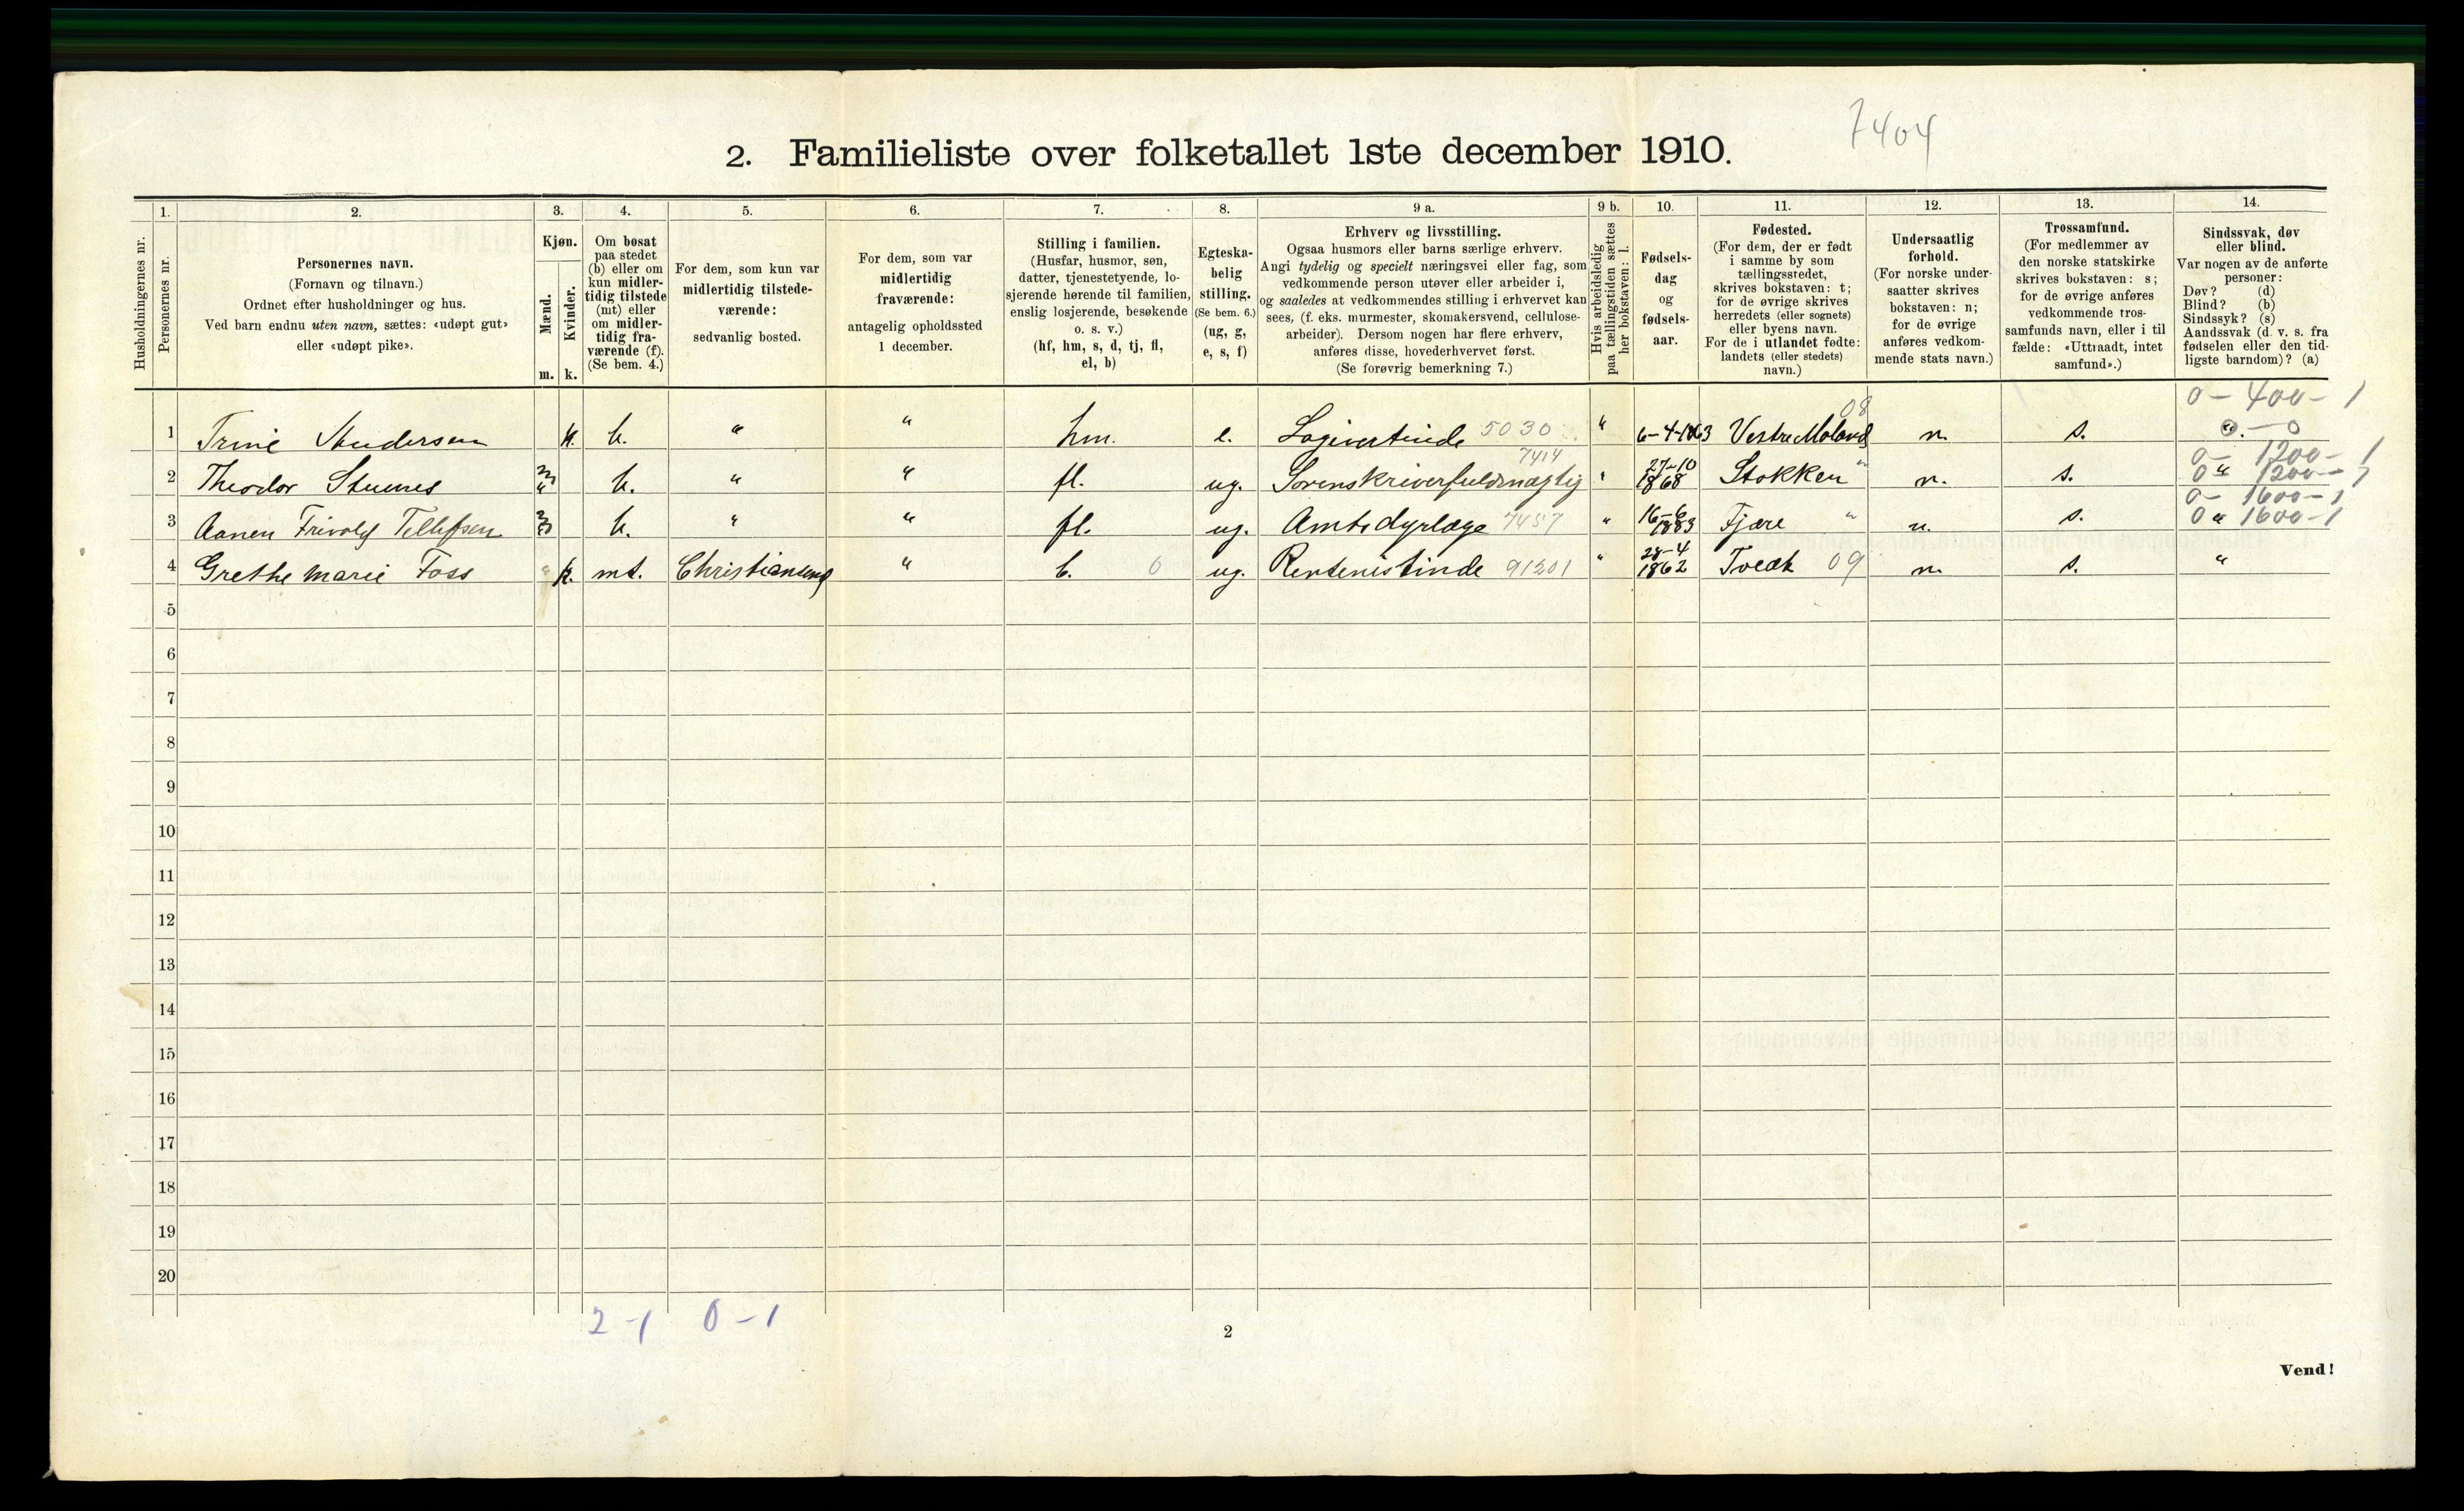 7404
2. Familieliste over folketallet 1ste december 1910.
1. 2. 3. 4. 5. 6. 7. 8. 9 a. 9 b. 10. 11. 12. 13. 14.
Husholdningernes nr.
Personernes nr.
Personernes navn.
(Fornavn og tilnavn.)
Ordnet efter husholdninger og hus.
Ved barn endnu uten navn, sættes: «udøpt gut»
eller «udøpt pike».
Kjøn.
Mænd.
Kvinder.
m. k.
Om bosat
paa stedet
(b) eller om
kun midler-
tidig tilstede
(mt) eller
om midler-
tidig fra-
værende (f).
(Se bem. 4.)
For dem, som kun var
midlertidig tilstede-
værende:
sedvanlig bosted.
For dem, som var
midlertidig
fraværende:
antagelig opholdssted
1 december.
Stilling i familien.
(Husfar, husmor, søn,
datter, tjenestetyende, lo-
sjerende hørende til familien,
enslig losjerende, besøkende
o. s. v.)
(hf, hm, s, d, tj, fl,
el, b)
Egteska-
belig
stilling.
(Se bem. 6.)
(ug, g,
e, s, f)
Erhverv og livsstilling.
Ogsaa husmors eller barns særlige erhverv.
Angi tydelig og specielt næringsvei eller fag, som
vedkommende person utøver eller arbeider i,
og saaledes at vedkommendes stilling i erhvervet kan
sees, (f. eks. murmester, skomakersvend, cellulose-
arbeider). Dersom nogen har flere erhverv,
anføres disse, hovederhvervet først.
(Se forøvrig bemerkning 7.)
Hvis arbeidsledig
paa tællingstiden sættes
her bokstaven: l.
Fødsels-
dag
og
fødsels-
aar.
Fødested.
(For dem, der er født
i samme by som
tællingsstedet,
skrives bokstaven: t;
for de øvrige skrives
herredets (eller sognets)
eller byens navn.
For de i utlandet fødte:
landets (eller stedets)
navn.)
Undersaatlig
forhold.
(For norske under-
saatter skrives
bokstaven: n;
for de øvrige
anføres vedkom-
mende stats navn.)
Trossamfund.
(For medlemmer av
den norske statskirke
skrives bokstaven: s;
for de øvrige anføres
vedkommende tros-
samfunds navn, eller i til
fælde: «Uttraadt, intet
samfund».)
Sindssvak, døv
eller blind.
Var nogen av de anførte
personer:
Døv? (d)
Blind? (b)
Sindssyk? (s)
Aandssvak (d. v. s. fra
fødselen eller den tid-
ligste barndom)? (a)
08 0 - 400 - 1
1 Trine k. b. " " hm. e. Logivertinde 5030 " 6-4-1863 Vestre Moland n. s. 0
7414 0 - 1200 - 1
2 Theodor m b. " " fl. ug. Sorenskriverfuldmægtig " 27-10 1868 Stokken " n. s. 0 " 1200 - 1
0 - 1600 - 1
3 Aanen Frivold Tellefsen m b. " " fl. ug. Amtsdyrlæge 7457 " 16-6 1883 Fjære " n. s. 0 " 1600 - 1
4 Grethe Marie Foss k. mt. Christiansund " b. 0 ug. Rentenistinde 91201 " 28-4 1862 Tvedt 09 n. s. "
5
6
7
8
9
10
11
12
13
14
15
16
17
18
19
20
2 - 1 0 - 1
2
Vend!